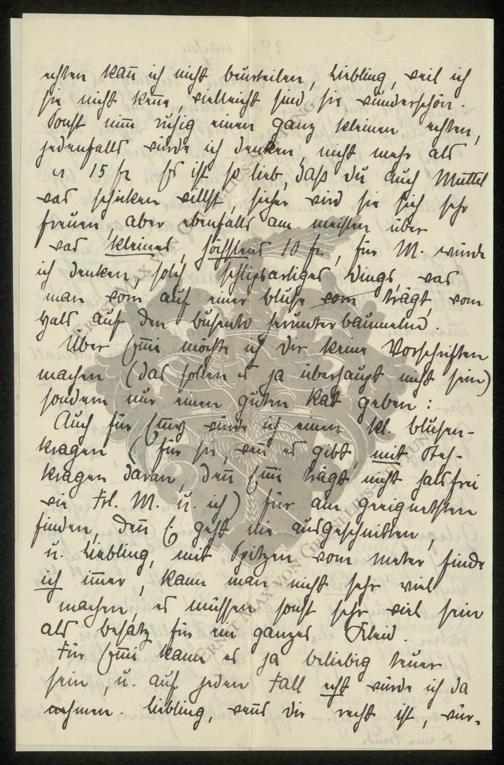 echten kan̄ ich nicht beurteilen, Liebling, weil ich
sie nicht ken̄e, vielleicht sind sie wunderschön.
Sonst nim̄ ruhig einen ganz kleinen echten,
jedenfalls würde ich denken, nicht mehr als
15 fr Es ist so lieb, daß du auch Muttel
was schicken willst, sicher wird sie sich sehr
freuen, aber ebenfalls am meisten über
was kleines, höchstens 10 fr, für M. würde
ich denken, solch schlipsartiges Dings, was
man vorn auf einer Bluse vorn trägt, vom
Hals auf den Busento herunterbaumelnd.
Über möchte ich dir keine Vorschriften
machen (das sollen es ja überhaupt nicht sein)
sondern nur einen guten Rat geben:
Auch für würde ich einen kl. Blusen-
kragen (für sie, wen̄ es gibt, mit Steh-
kragen daran, den̄ trägt nicht halsfrei
wie Frl. M. u. ich) für am geeignetsten
finden, den̄ E geht nie ausgeschnitten,
u. Liebling, mit Spitzen vom Meter, finde
ich im̄er, kann man nicht sehr viel
machen, es müssen sonst sehr viel sein
als Besatz für ein ganzes Kleid.
Für kann es ja beliebig teuer
sein, u. auf jeden Fall echt würde ich da
nehmen. Liebling, wen̄s dir recht ist, wür-
ERNST MAX VON GRUNELIUS-STIFTUNG
ERNST MAX VON GRUNELIUS-STIFTUNG